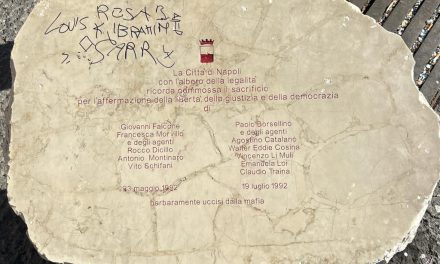 ROSA B
LOUIS X IBRAHIM
La Città di Napoli
con l'albero della legalità
ricorda commossa il sacrificio
per l'affermazione della libertà, della giustizia e della democrazia
di
Giovanni Falcone
Francesca Morvillo
e degli agenti
Rocco Dicillo
Antonio Montinaro
Vito Schifani
Paolo Borsellino
e degli agenti
Agostino Catalano
Walter Eddie Cosina
Vincenzo Li Muli
Emanuela Loi
Claudio Traina
23 maggio 1992
19 luglio 1992
barbaramente uccisi dalla mafia